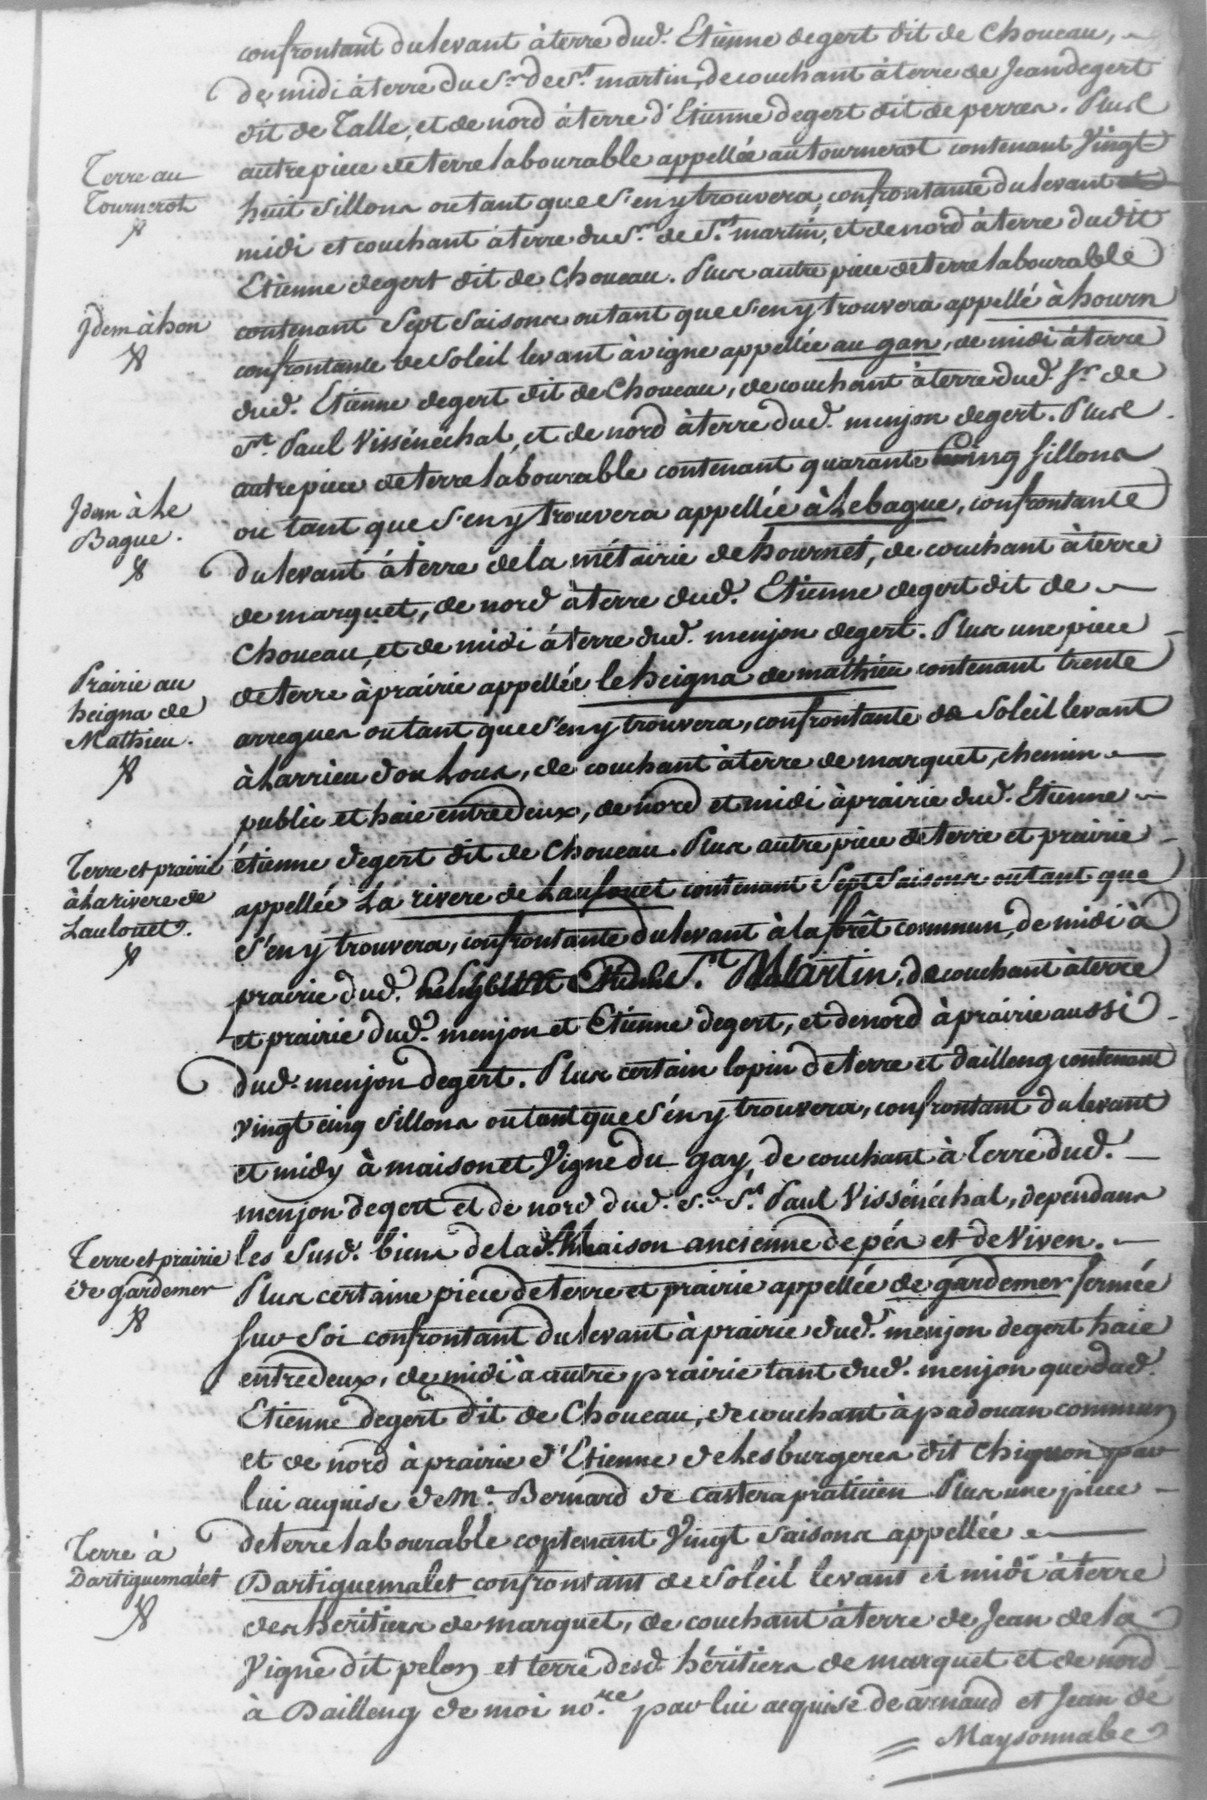 confrontant du levant à terre dud. Etienne degert dit de Choueau,
de midi à terre du Sr. de St. martin, de couchant à terre de Jean degert
dit de Talle, et de nord à terre d'Etienne degert dit de perres. Plus
autre piece de terre labourable appellée au tournerot contenant Vingt
Terre au
Tournerot
huit sillons ou tant que s'en y trouvera, confrontante du levant
midi et couchant à terre du Sr. de St. martin, et de nord à terre dudit
Etienne degert dit de Choueau. Plus autre piece de terre labourable
Idem à hon
contenant Sept Saisons ou tant que s'en y trouvera appellé à hourn
confrontante de Soleil levant à vigne appellée au gan, de midi à terre
dud. Etienne degert dit de Choueau, de couchant à terre dud. sr. de
St. Paul Vissénéchal, et de nord à terre dud. menjon degert. Plus
autre piece de terre labourable contenant quarante cinq sillons
Idem à Le
Bague.
ou tant que s'en y trouvera appellée à Lebague, confrontante
du levant à terre de la métairie de hournet, de couchant à terre
de marquet, de nord à terre dud. Etienne degert dit de
Choueau, et de midi à terre dud. menjon degert. Plus une piece
Prairie au
heigna de
Mathieu.
de terre à prairie appellée le heigna de mathieu contenant trente
arregues ou tant que s'en y trouvera, confrontante de Soleil levant
à Larrieu dou Lous, de couchant à terre de marquet, chemin
public et haie entredeux, de nord et midi à prairie dud. Etienne
Terre et prairie
à La rivere de
Laulouet.
étienne degert dit de Choueau. Plus autre piece de terre et prairie
appellée La rivere de Laulouet contenant Sept Saisons ou tant que
s'en y trouvera, confrontante du levant à la forêt commun, de midi à
prairie dud. St. Martin, de couchant à terre
et prairie dud. menjon et Etienne degert, et de nord à prairie aussi
dud. menjon degert. Plus certain lopin de terre et dailleng contenant
vingt cinq sillons ou tant que s'en y trouvera, confrontant du levant
et midy à maison et Vigne du gay, de couchant à Terre dud.
menjon degert et de nord dud. Sr. St. Paul Vissénéchal, dependans
les Susd. biens de lad. Maison ancienne de pés et de Viven.
Terre et prairie
de gardemer
Plus certaine piece de terre et prairie appellée de gardemer fermée
sur Soi confrontant du levant à prairie dud. menjon degert haie
entredeux, de midi à autre prairie tant dud. menjon que dud.
Etienne degert dit de Choueau, de couchant à padouan commun
et de nord à prairie d'Etienne de Lesburgeres dit Chiquon par
lui acquise de Me. Bernard de Castera praticien Plus une piece
Terre à
Dartiguemalet
de terre labourable contenant Vingt saisons appellée
Dartiguemalet confrontant de Soleil levant et midi à terre
des heritiers de marquet, de couchant à terre de Jean de la
Vigne dit pelon et terre desd. héritiers de marquet et de nord
à Dailleng de moi nore. par lui acquise de arnaud et Jean de
Maysonnabe